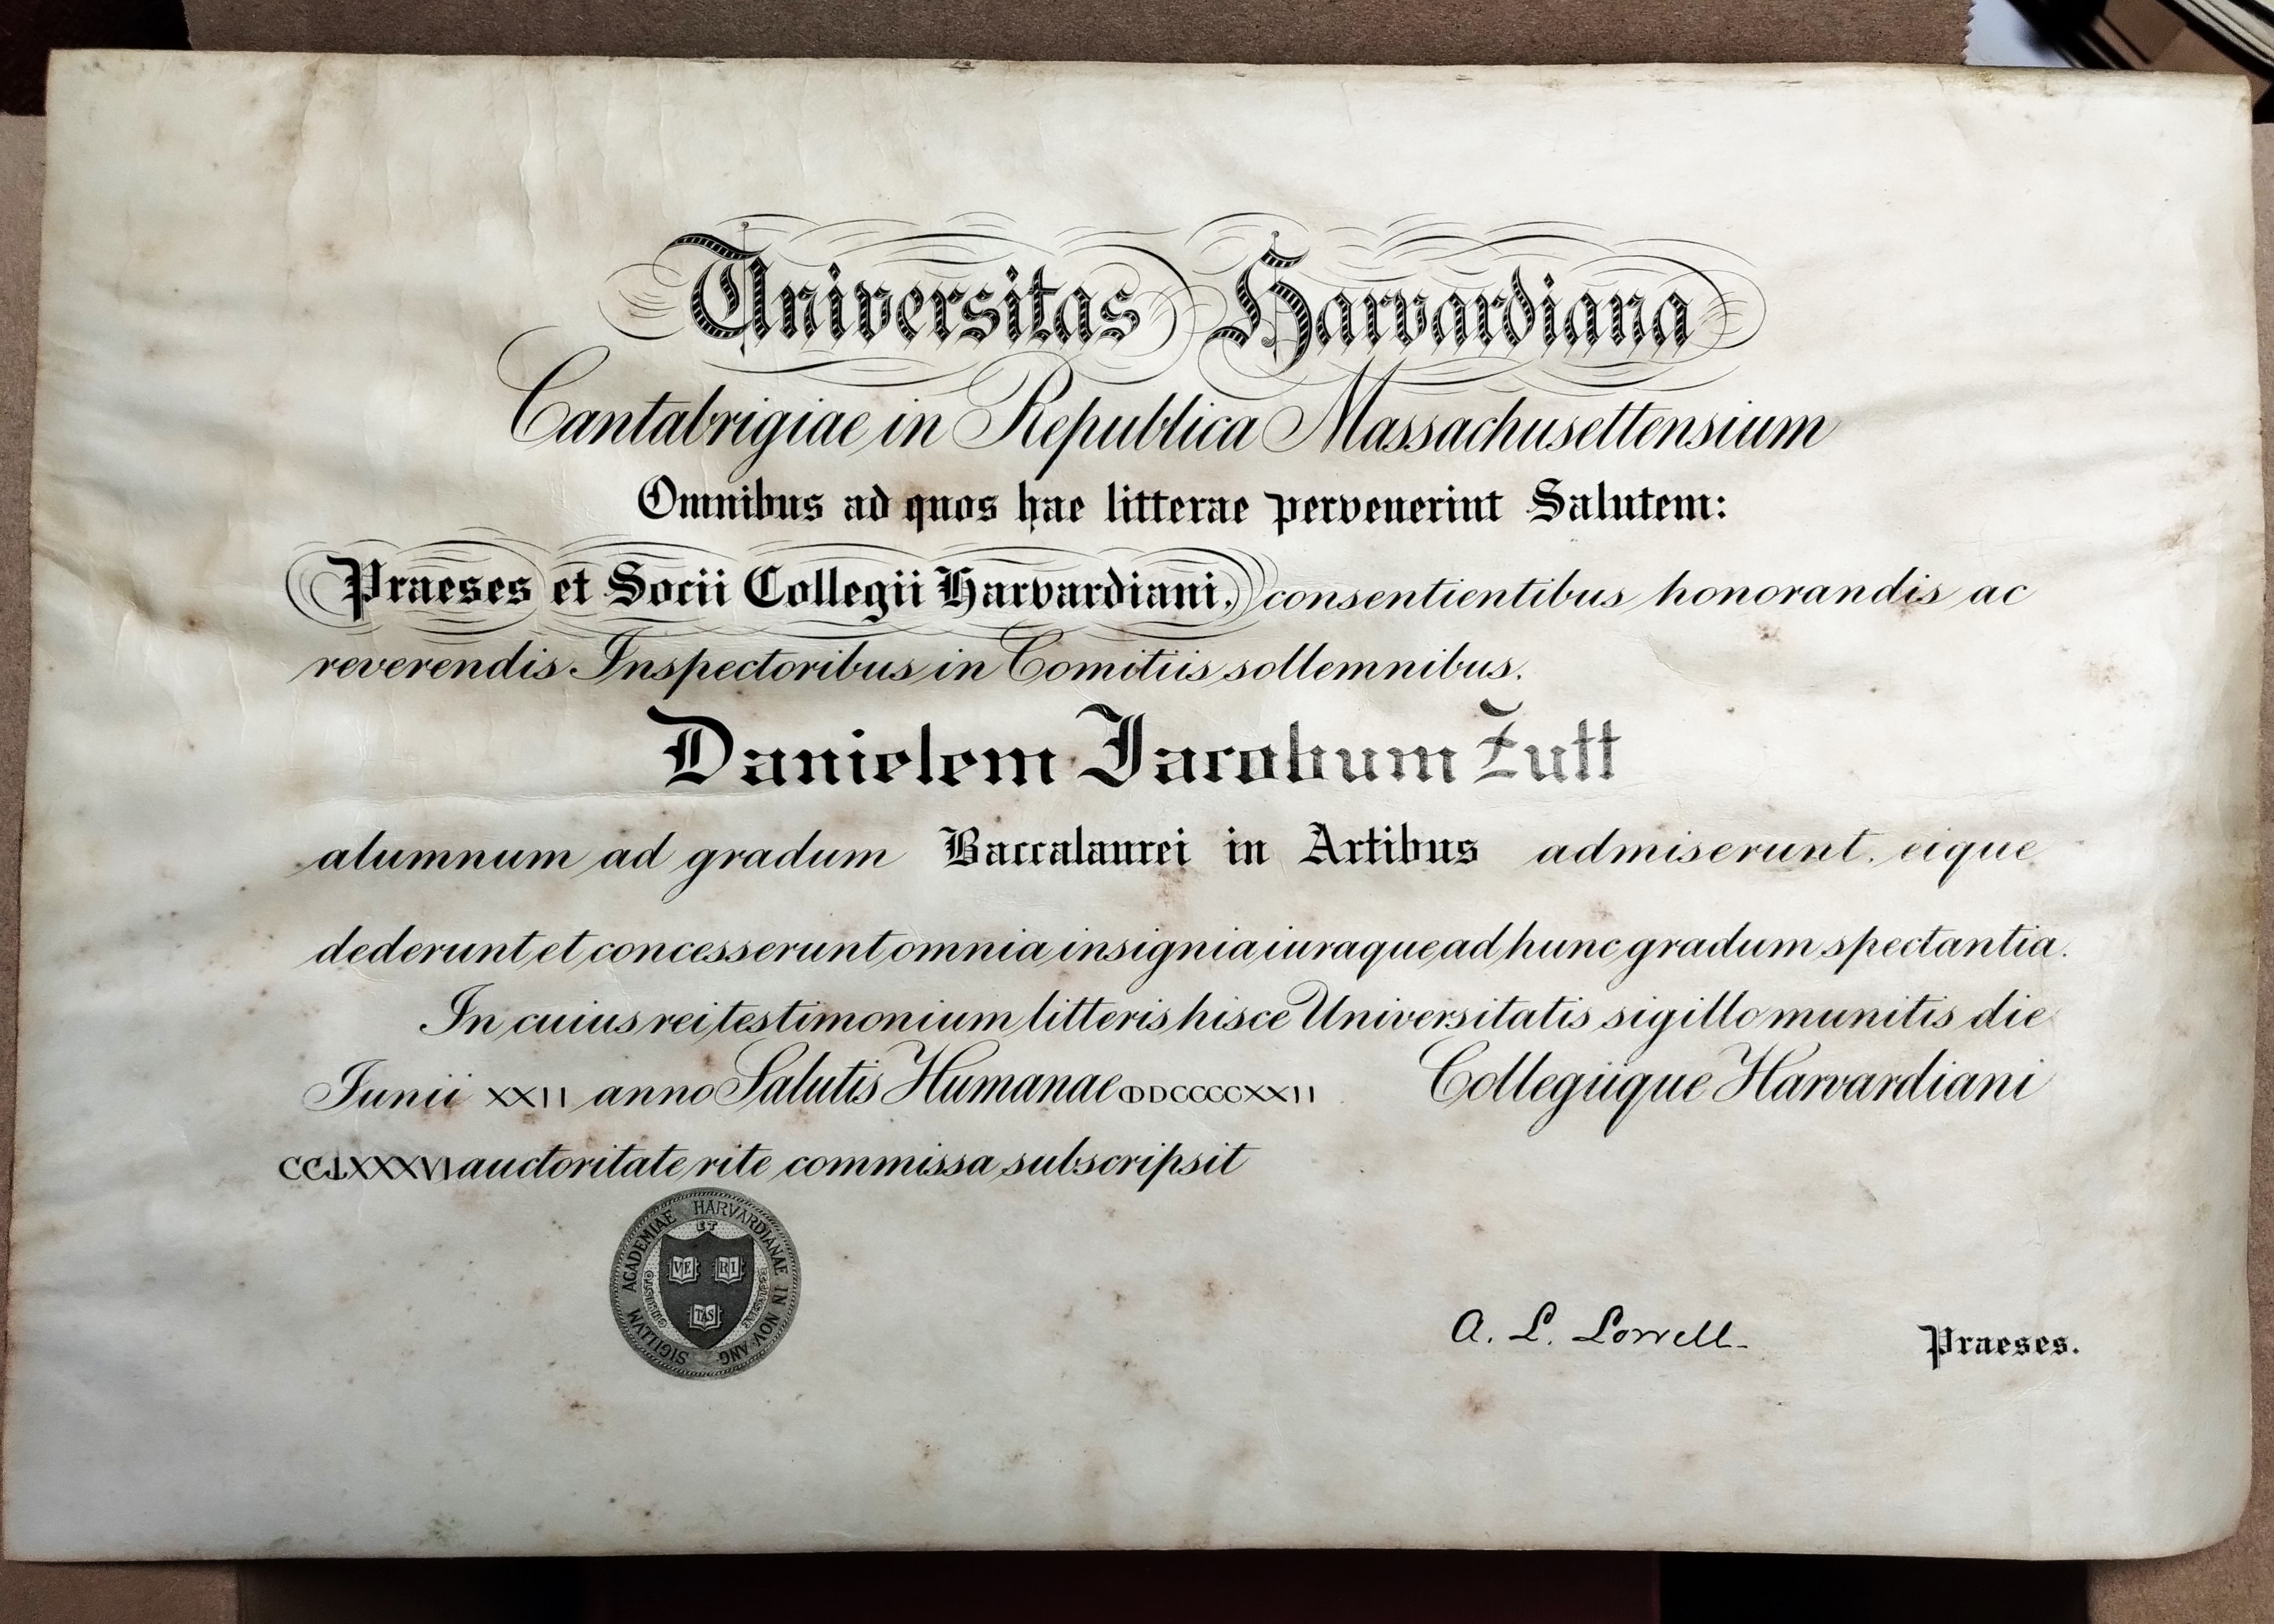 Universitas Harvardiana
Cantabrigiae in Republica Massachusettensium
Omnibus ad quos hae litterae pervenerint Salutem:
Praeses et Socii Collegii Harvardiani, consentientibus honorandis ac
reverendis Inspectoribus in Comitiis sollemnibus.
Danielem Jacobum Zutt
alumnum ad gradum Baccalaurei in Artibus admiserunt, eique
dederunt et concesserunt omnia insignia iuraque ad hunc gradum spectantia.
In cuius rei testimonium litteris hisce Universitatis sigillo munitis die
Junii XXII anno Salutis Humanae ⅭⅠↃDCCCCXXII Collegiique Harvardiani
CCLXXXVI auctoritate rite commissa subscripsit
SIGILLVM ACADEMIAE HARVARDIANAE IN NOV ANG
ET
VE RI
TAS
A. L. Lowell.
Praeses.